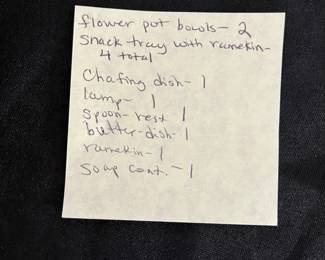 flower pot bowls- 2
snack tray with ramekin-
4 total
Chafing dish- 1
lamp- 1
spoon-rest 1
butter-dish- 1
ramekin- 1
soap cont. - 1